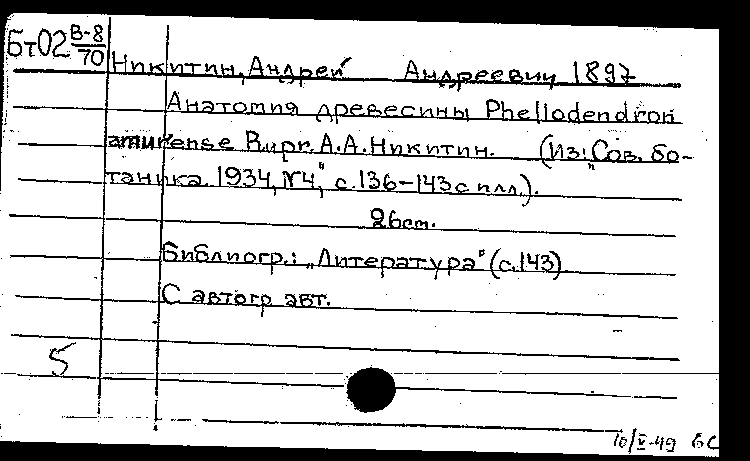 Бт02 В-8/70
Никитин, Андрей Андреевич 1897
Анатомия древесины Phellodendron
amurense Rupr. А.А. Никитин. (Из: „Сов. бо-
таника. 1934, №4,“ с. 136-143 с илл.).
26 cm.
Библиогр.: „Литература“ (с. 143)
С автогр авт.
5
10/V-49 БС